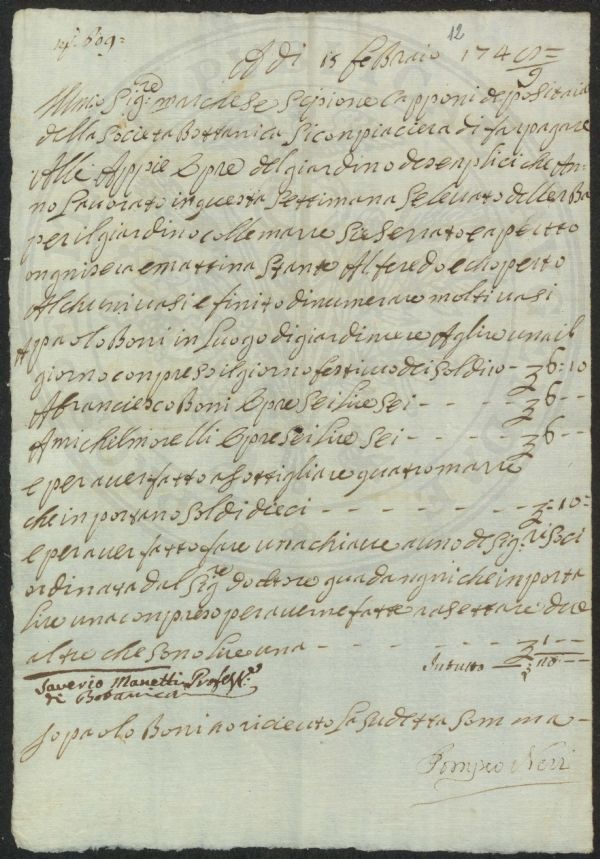 12
A di 15 febraio 174 8/9
Illmo Sigre marchese Scipione Capponi depositario
della Societa Bottanica Si conpiacera di far pagare
Alli Appie Opre del giardino de senplici che An-
no Lavorato in questa Settimana Se levato dell erBa
per il giardino colle marre Si e Serrato e aperto
ongni sera e mattina Stante Al freddo e choperto
Alchuni vasi e finito di numerare molti vasi
A paolo Boni in Luogo di giardiniere A lire una il
giorno conpreso il giorno festivo dei Soldi 10 - £ 6:10
A franciesco Boni Opre Sei lire Sei - - - - £ 6 - -
A michel morelli Opre Sei lire Sei - - - - £ 6 - -
e per aver fatto asottigliare quatro marre
che inportano Soldi dieci - - - - - - £ - 10 -
e per aver fatto fare una chiave a uno de Sigri Soci
ordinata dal Sigre Dottore guadangni che inporta
lire una conpreso per averne fatte rasettare due
altre che Sono lire una - - - - - - £ 1 - -
In tutto £ 20 - -
Saverio Manetti Profre
di Botanica
Io paolo Boni o riceuto La Sudetta Somma -
Pompeo Neri